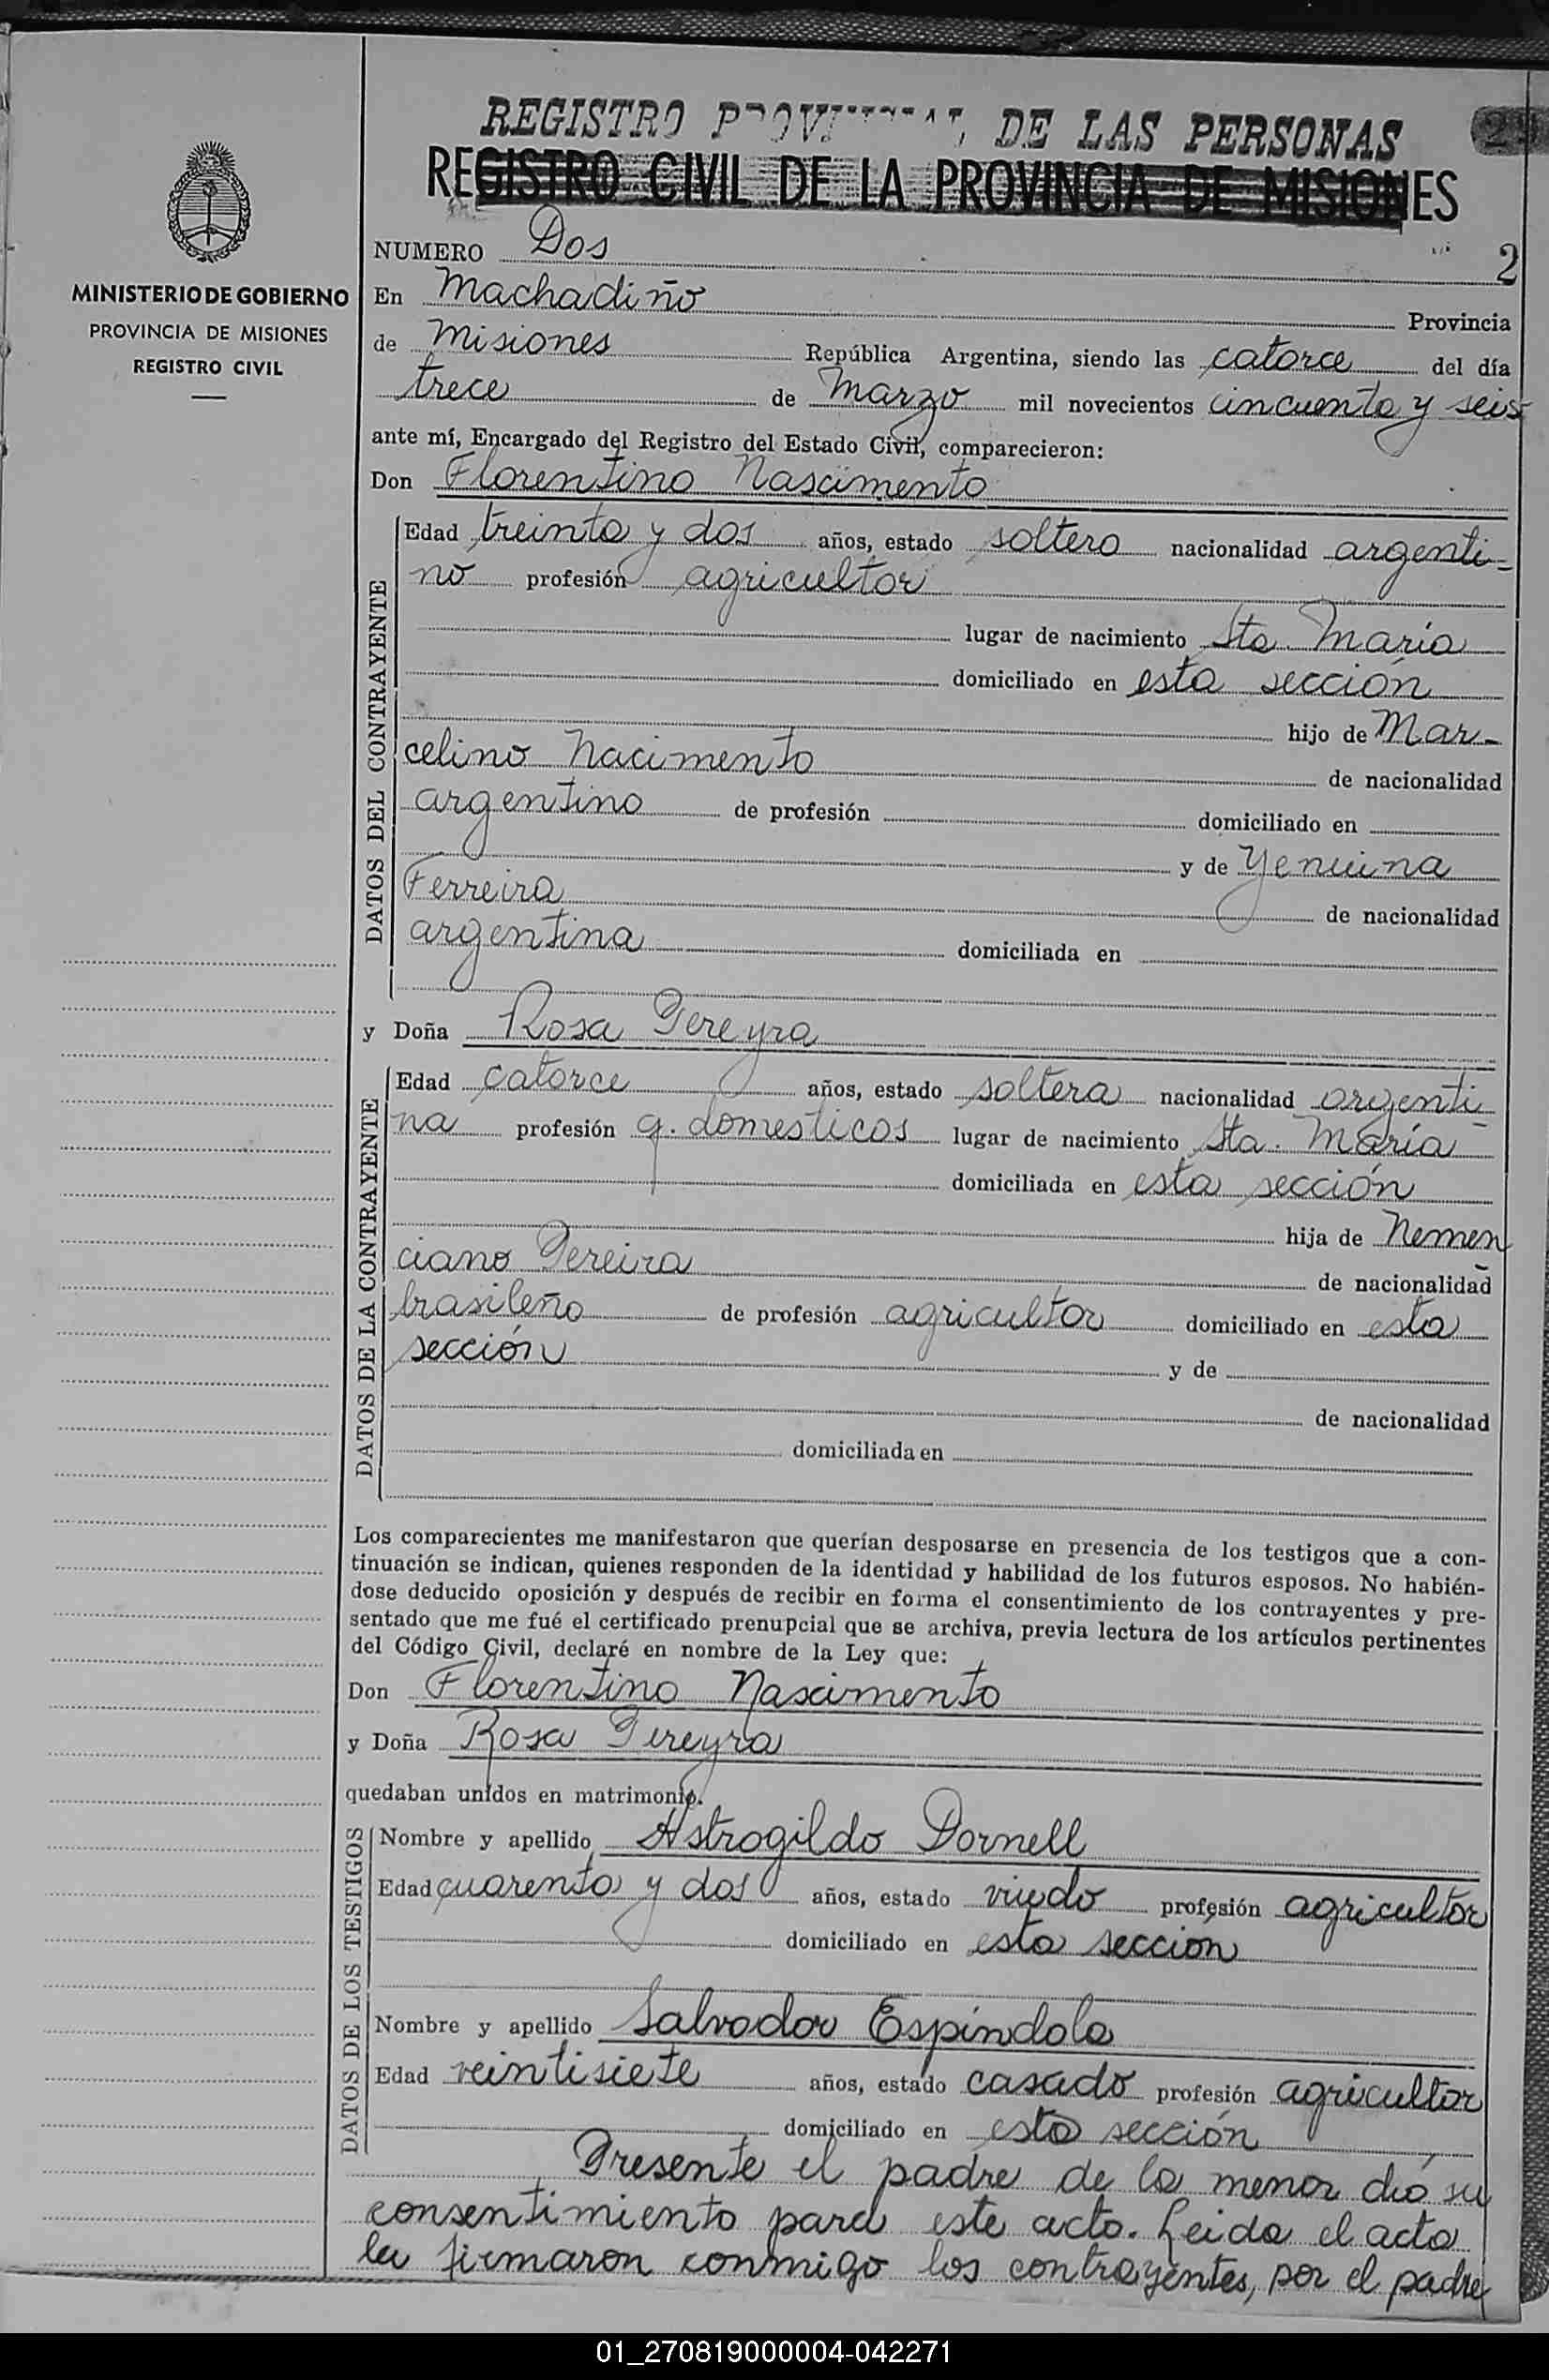 REGISTRO PROVINCIAL DE LAS PERSONAS
REGISTRO CIVIL DE LA PROVINCIA DE MISIONES
MINISTERIO DE GOBIERNO
PROVINCIA DE MISIONES
REGISTRO CIVIL
NUMERO Dos 2
En Machadiño Provincia
de Misiones República Argentina, siendo las catorce del día
trece de Marzo mil novecientos cincuenta y seis
ante mí, Encargado del Registro del Estado Civil, comparecieron:
Don Florentino Nascimento
DATOS DEL CONTRAYENTE
Edad treinta y dos años, estado soltero nacionalidad argenti-
no profesión agricultor
lugar de nacimiento Sta. María
domiciliado en esta sección
hijo de Mar-
celino Nacimento de nacionalidad
argentino de profesión domiciliado en
y de Yenuina
Ferreira de nacionalidad
argentina domiciliada en
y Doña Rosa Pereyra
DATOS DE LA CONTRAYENTE
Edad catorce años, estado soltera nacionalidad argenti-
na profesión q. domesticos lugar de nacimiento Sta. María
domiciliada en esta sección
hija de Nemen-
ciano Pereira de nacionalidad
brasileño de profesión agricultor domiciliado en esta
sección y de
de nacionalidad
domiciliada en
Los comparecientes me manifestaron que querían desposarse en presencia de los testigos que a con-
tinuación se indican, quienes responden de la identidad y habilidad de los futuros esposos. No habién-
dose deducido oposición y después de recibir en forma el consentimiento de los contrayentes y pre-
sentado que me fué el certificado prenupcial que se archiva, previa lectura de los artículos pertinentes
del Código Civil, declaré en nombre de la Ley que:
Don Florentino Nascimento
y Doña Rosa Pereyra
quedaban unidos en matrimonio.
DATOS DE LOS TESTIGOS
Nombre y apellido Astrogildo Dornell
Edad cuarenta y dos años, estado viudo profesión agricultor
domiciliado en esta seccion
Nombre y apellido Salvador Espíndola
Edad veintisiete años, estado casado profesión agricultor
domiciliado en esta sección
Presente el padre de la menor dió su
consentimiento para este acto. Leida el acta
la firmaron conmigo los contrayentes, por el padre
01_270819000004-042271